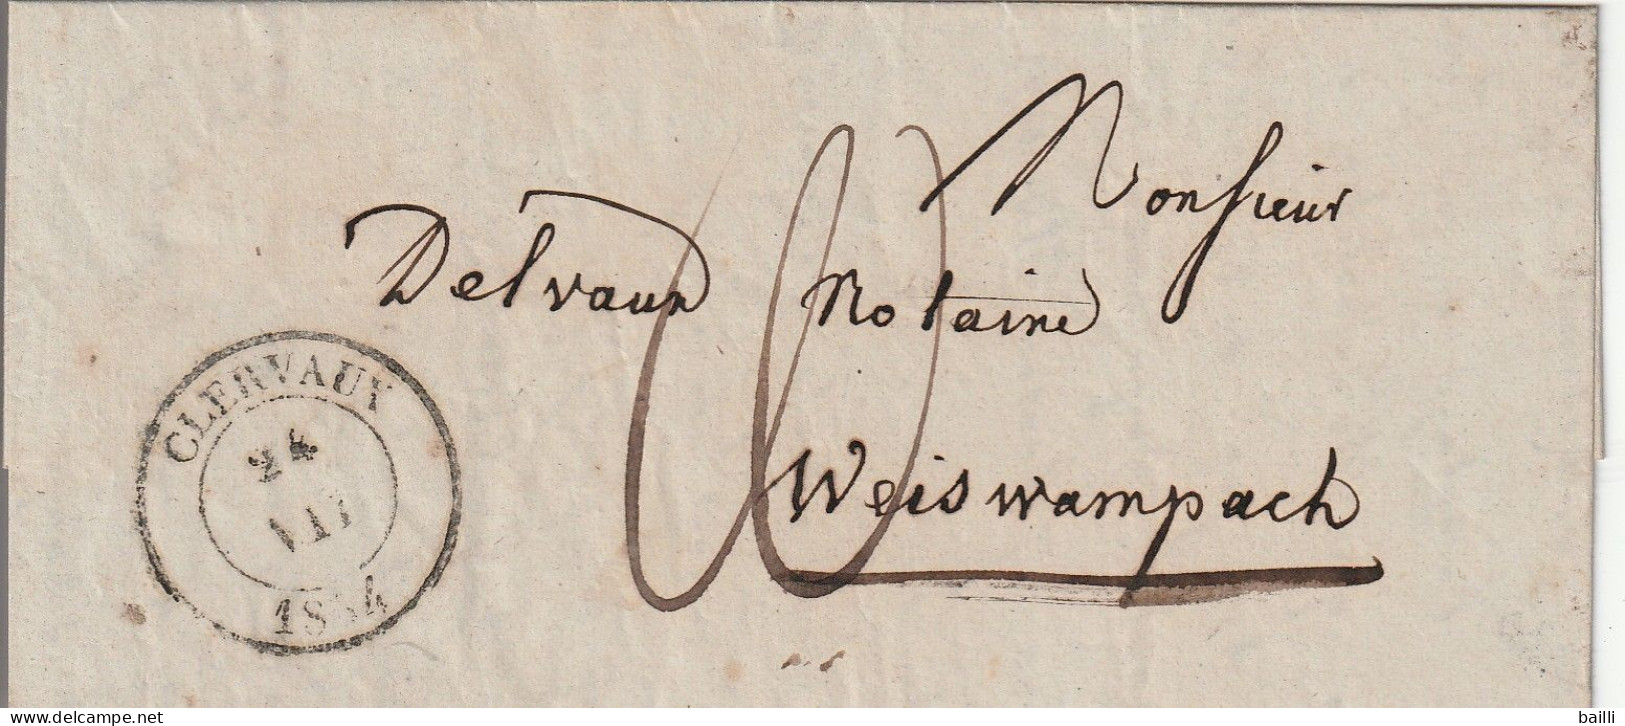 Monsieur
Delvaux Notaire
Weiswampach
CLERVAUX
24
1854
www.delcampe.net
bailli